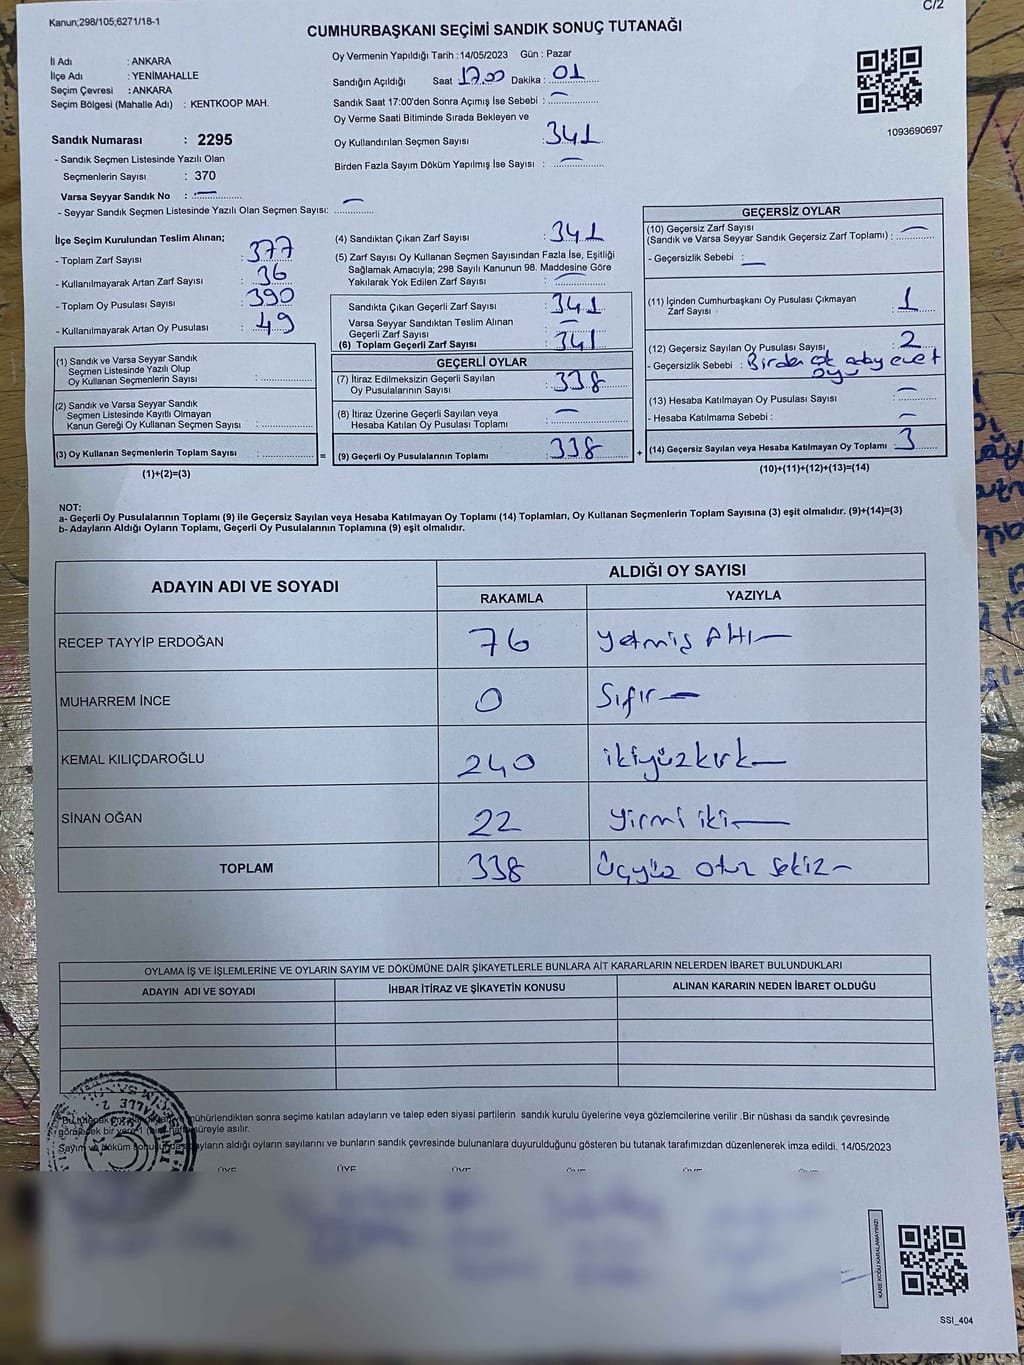 Kanun;298/105;6271/18-1
C/2
CUMHURBAŞKANI SEÇİMİ SANDIK SONUÇ TUTANAĞI
İl Adı : ANKARA
İlçe Adı : YENİMAHALLE
Seçim Çevresi : ANKARA
Seçim Bölgesi (Mahalle Adı) : KENTKOOP MAH.
Sandık Numarası : 2295
- Sandık Seçmen Listesinde Yazılı Olan
Seçmenlerin Sayısı : 370
Varsa Seyyar Sandık No : —
- Seyyar Sandık Seçmen Listesinde Yazılı Olan Seçmen Sayısı: —
Oy Vermenin Yapıldığı Tarih :14/05/2023 Gün : Pazar
Sandığın Açıldığı Saat 17.00 Dakika : 01
Sandık Saat 17:00'den Sonra Açımış İse Sebebi : —
Oy Verme Saati Bitiminde Sırada Bekleyen ve
Oy Kullandırılan Seçmen Sayısı : 341
Birden Fazla Sayım Döküm Yapılmış İse Sayısı : —
1093690697
İlçe Seçim Kurulundan Teslim Alınan;
- Toplam Zarf Sayısı : 377
- Kullanılmayarak Artan Zarf Sayısı : 36
- Toplam Oy Pusulası Sayısı : 390
- Kullanılmayarak Artan Oy Pusulası : 49
(1) Sandık ve Varsa Seyyar Sandık
Seçmen Listesinde Yazılı Olup
Oy Kullanan Seçmenlerin Sayısı :
(2) Sandık ve Varsa Seyyar Sandık
Seçmen Listesinde Kayıtlı Olmayan
Kanun Gereği Oy Kullanan Seçmen Sayısı :
(3) Oy Kullanan Seçmenlerin Toplam Sayısı :
(1)+(2)=(3)
(4) Sandıktan Çıkan Zarf Sayısı : 341
(5) Zarf Sayısı Oy Kullanan Seçmen Sayısından Fazla İse, Eşitliği
Sağlamak Amacıyla; 298 Sayılı Kanunun 98. Maddesine Göre
Yakılarak Yok Edilen Zarf Sayısı : —
Sandıkta Çıkan Geçerli Zarf Sayısı : 341
Varsa Seyyar Sandıktan Teslim Alınan
Geçerli Zarf Sayısı : —
(6) Toplam Geçerli Zarf Sayısı : 341
GEÇERLİ OYLAR
(7) İtiraz Edilmeksizin Geçerli Sayılan
Oy Pusulalarının Sayısı : 338
(8) İtiraz Üzerine Geçerli Sayılan veya
Hesaba Katılan Oy Pusulası Toplamı : —
= (9) Geçerli Oy Pusulalarının Toplamı : 338 +
GEÇERSİZ OYLAR
(10) Geçersiz Zarf Sayısı
(Sandık ve Varsa Seyyar Sandık Geçersiz Zarf Toplamı) : —
- Geçersizlik Sebebi : —
(11) İçinden Cumhurbaşkanı Oy Pusulası Çıkmayan
Zarf Sayısı : 1
(12) Geçersiz Sayılan Oy Pusulası Sayısı : 2
- Geçersizlik Sebebi : Birden
oyu
(13) Hesaba Katılmayan Oy Pusulası Sayısı : —
- Hesaba Katılmama Sebebi : —
(14) Geçersiz Sayılan veya Hesaba Katılmayan Oy Toplamı : 3
(10)+(11)+(12)+(13)=(14)
NOT:
a- Geçerli Oy Pusulalarının Toplamı (9) ile Geçersiz Sayılan veya Hesaba Katılmayan Oy Toplamı (14) Toplamları, Oy Kullanan Seçmenlerin Toplam Sayısına (3) eşit olmalıdır. (9)+(14)=(3)
b- Adayların Aldığı Oyların Toplamı, Geçerli Oy Pusulalarının Toplamına (9) eşit olmalıdır.
ADAYIN ADI VE SOYADI
ALDIĞI OY SAYISI
RAKAMLA YAZIYLA
RECEP TAYYİP ERDOĞAN 76 Yetmiş Altı
MUHARREM İNCE 0 Sıfır
KEMAL KILIÇDAROĞLU 240 ikiyüzkırk
SİNAN OĞAN 22 Yirmi iki
TOPLAM 338 Üçyüz otuz sekiz
OYLAMA İŞ VE İŞLEMLERİNE VE OYLARIN SAYIM VE DÖKÜMÜNE DAİR ŞİKAYETLERLE BUNLARA AİT KARARLARIN NELERDEN İBARET BULUNDUKLARI
ADAYIN ADI VE SOYADI
İHBAR İTİRAZ VE ŞİKAYETİN KONUSU
ALINAN KARARIN NEDEN İBARET OLDUĞU
mühürlendikten sonra seçime katılan adayların ve talep eden siyasi partilerin sandık kurulu üyelerine veya gözlemcilerine verilir .Bir nüshası da sandık çevresinde
süreyle asılır.
aldığı oyların sayılarını ve bunların sandık çevresinde bulunanlara duyurulduğunu gösteren bu tutanak tarafımızdan düzenlenerek imza edildi. 14/05/2023
ÜYE ÜYE ÜYE ÜYE ÜYE ÜYE
KARE KODU KARALAMAYINIZ!
SSI_404